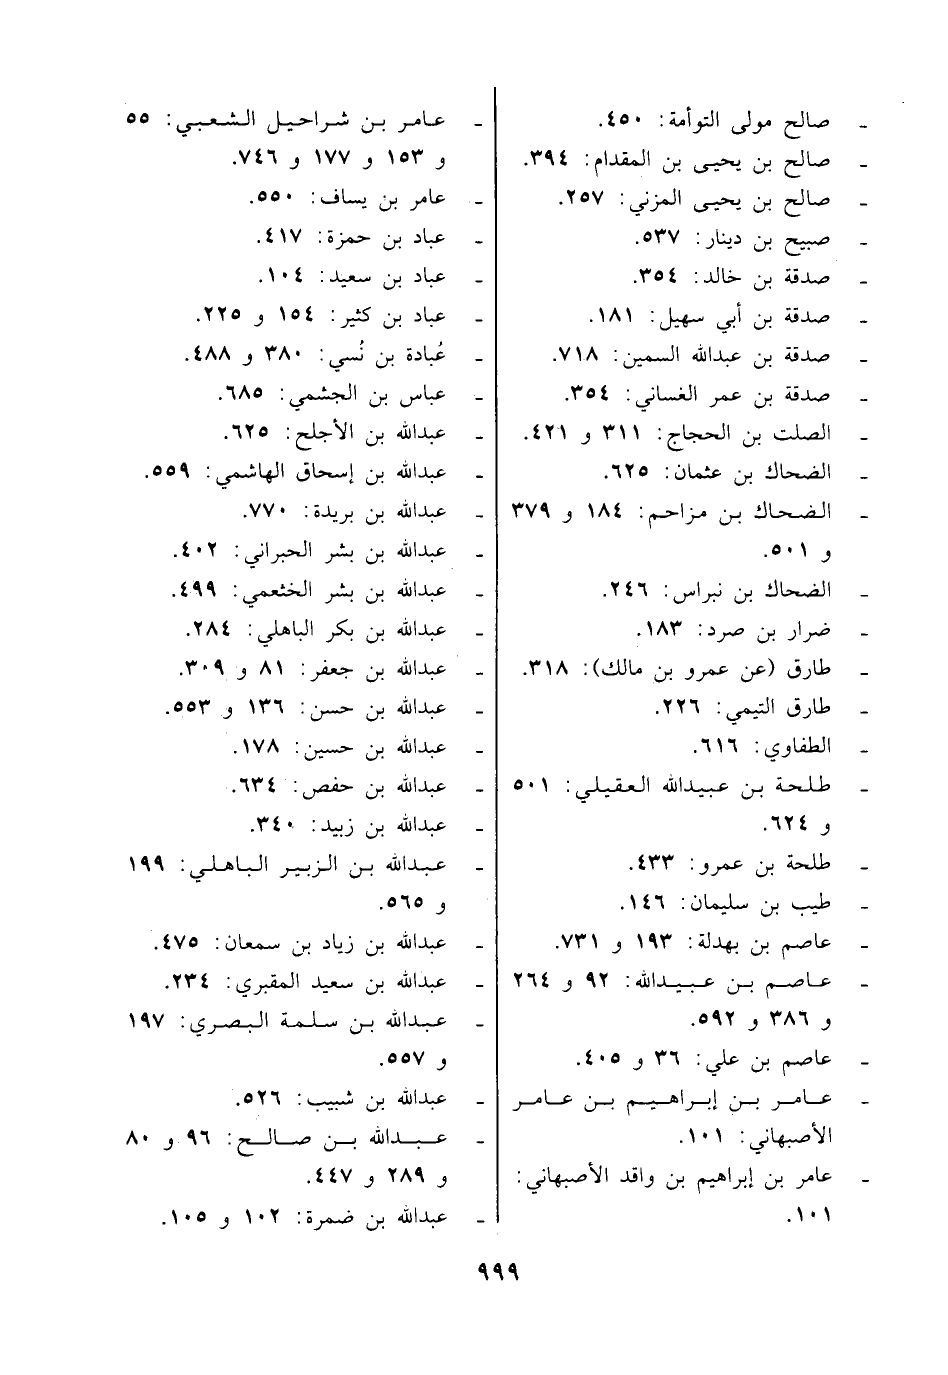 - صالح مولى التوأمة: ٤٥٠.
- صالح بن يحيى بن المقدام: ٣٩٤.
- صالح بن يحيى المزني: ٢٥٧.
- صبيح بن دينار: ٥٣٧.
- صدقة بن خالد: ٣٥٤.
- صدقة بن أبي سهيل: ١٨١.
- صدقة بن عبدالله السمين: ٧١٨.
- صدقة بن عمر الغساني: ٣٥٤.
- الصلت بن الحجاج: ٣١١ و ٤٢١.
- الضحاك بن عثمان: ٦٢٥.
- الضحاك بن مزاحم: ١٨٤ و ٣٧٩
و ٥٠١.
- الضحاك بن نبراس: ٢٤٦.
- ضرار بن صرد: ١٨٣.
- طارق (عن عمرو بن مالك): ٣١٨.
- طارق التيمي: ٢٢٦.
- الطفاوي: ٦١٦.
- طلحة بن عبيدالله العقيلي: ٥٠١
و ٦٢٤.
- طلحة بن عمرو: ٤٣٣.
- طيب بن سليمان: ١٤٦.
- عاصم بن بهدلة: ١٩٣ و ٧٣١.
- عاصم بن عبيدالله: ٩٢ و ٢٦٤
و ٣٨٦ و ٥٩٢.
- عاصم بن علي: ٣٦ و ٤٠٥.
- عامر بن إبراهيم بن عامر
الأصبهاني: ١٠١.
- عامر بن إبراهيم بن واقد الأصبهاني:
١٠١.
- عامر بن شراحيل الشعبي: ٥٥
و ١٥٣ و ١٧٧ و ٧٤٦.
- عامر بن يساف: ٥٥٠.
- عباد بن حمزة: ٤١٧.
- عباد بن سعيد: ١٠٤.
- عباد بن كثير: ١٥٤ و ٢٢٥.
- عُبادة بن نُسي: ٣٨٠ و ٤٨٨.
- عباس بن الجشمي: ٦٨٥.
- عبدالله بن الأجلح: ٦٢٥.
- عبدالله بن إسحاق الهاشمي: ٥٥٩.
- عبدالله بن بريدة: ٧٧٠.
- عبدالله بن بشر الحبراني: ٤٠٢.
- عبدالله بن بشر الخثعمي: ٤٩٩.
- عبدالله بن بكر الباهلي: ٢٨٤.
- عبدالله بن جعفر: ٨١ و ٣٠٩.
- عبدالله بن حسن: ١٣٦ و ٥٥٣.
- عبدالله بن حسين: ١٧٨.
- عبدالله بن حفص: ٦٣٤.
- عبدالله بن زبيد: ٣٤٠.
- عبدالله بن الزبير الباهلي: ١٩٩
و ٥٦٥.
- عبدالله بن زياد بن سمعان: ٤٧٥.
- عبدالله بن سعيد المقبري: ٢٣٤.
- عبدالله بن سلمة البصري: ١٩٧
و ٥٥٧.
- عبدالله بن شبيب: ٥٢٦.
- عبدالله بن صالح: ٩٦ و ٨٠
و ٢٨٩ و ٤٤٧.
- عبدالله بن ضمرة: ١٠٢ و ١٠٥.
٩٩٩